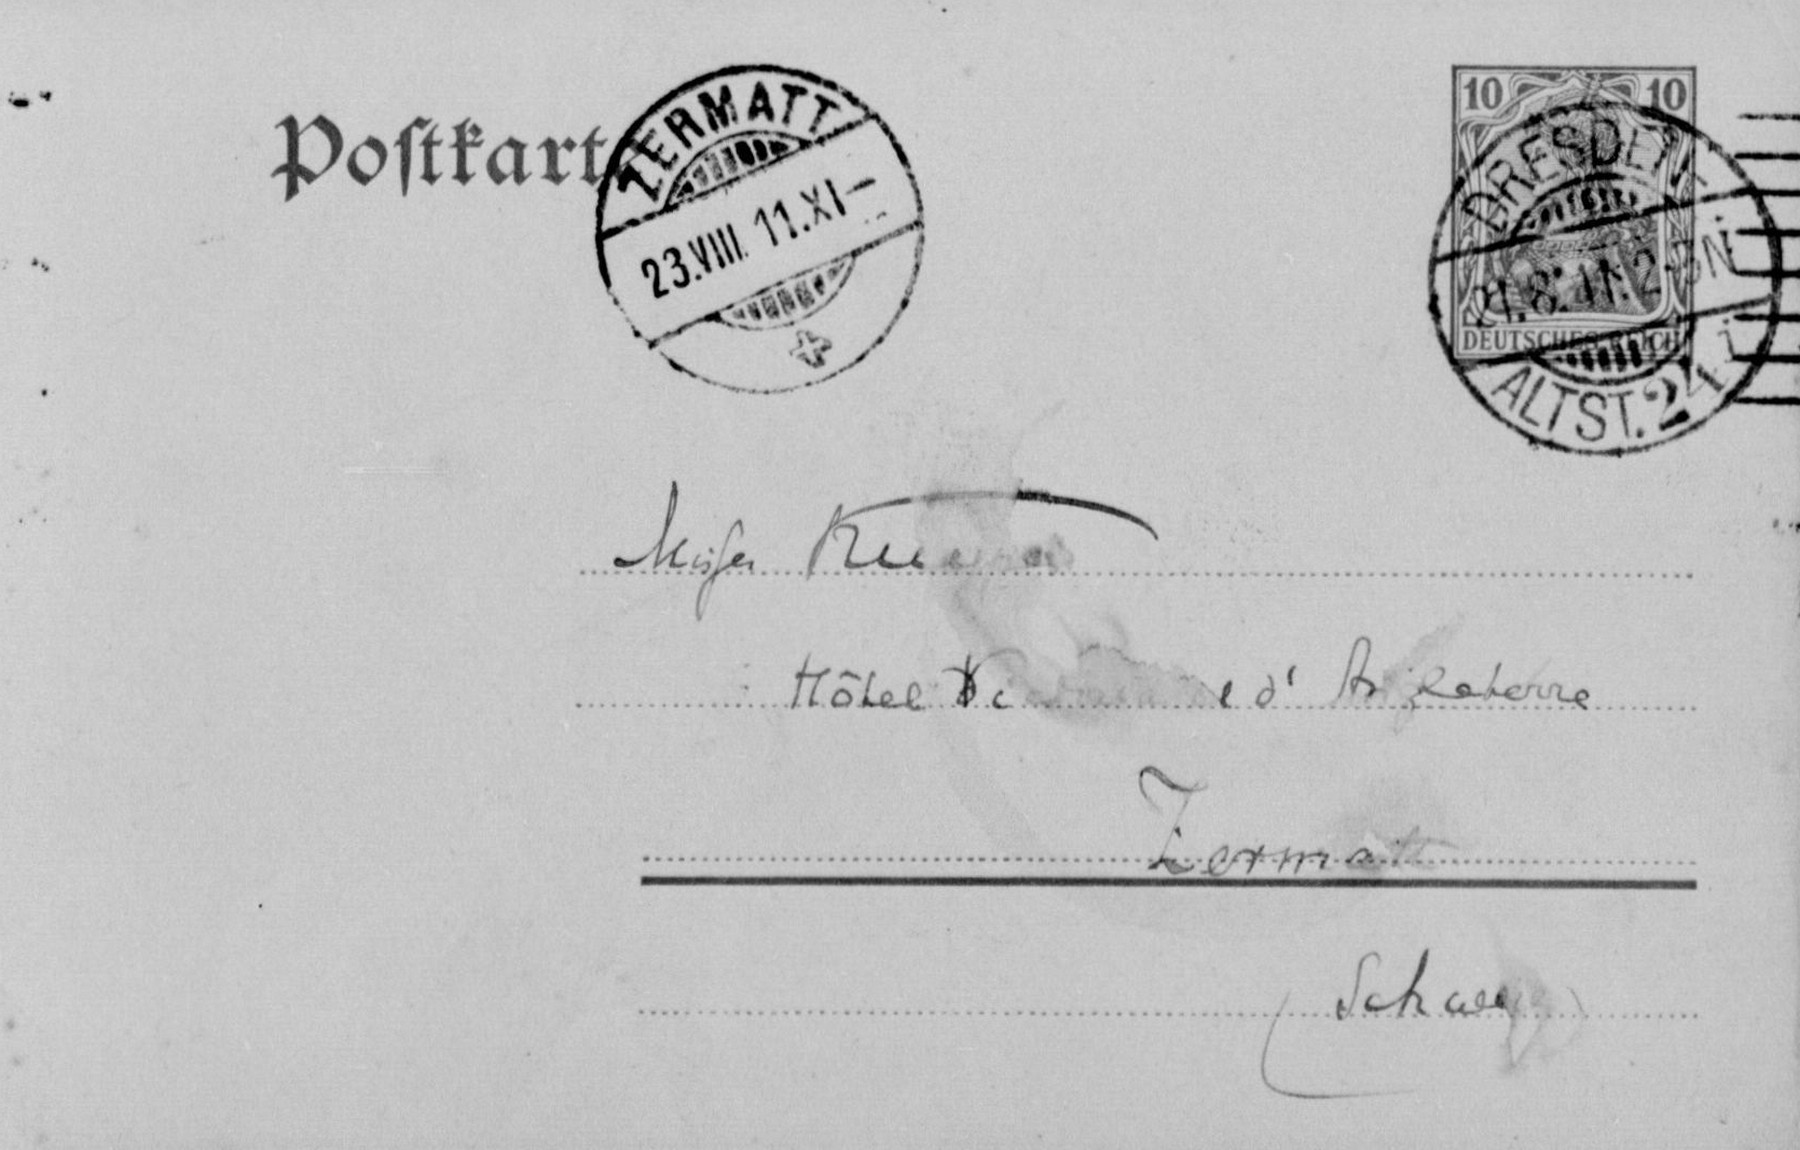 Postkart
ZERMATT
23.VIII. 11.XI–
10 10
DEUTSCHES REICH
DRESDEN
21.8.11. 2-3N
ALTST. 24
Hôtel d'Angleterre
Zermatt
(Schweiz)